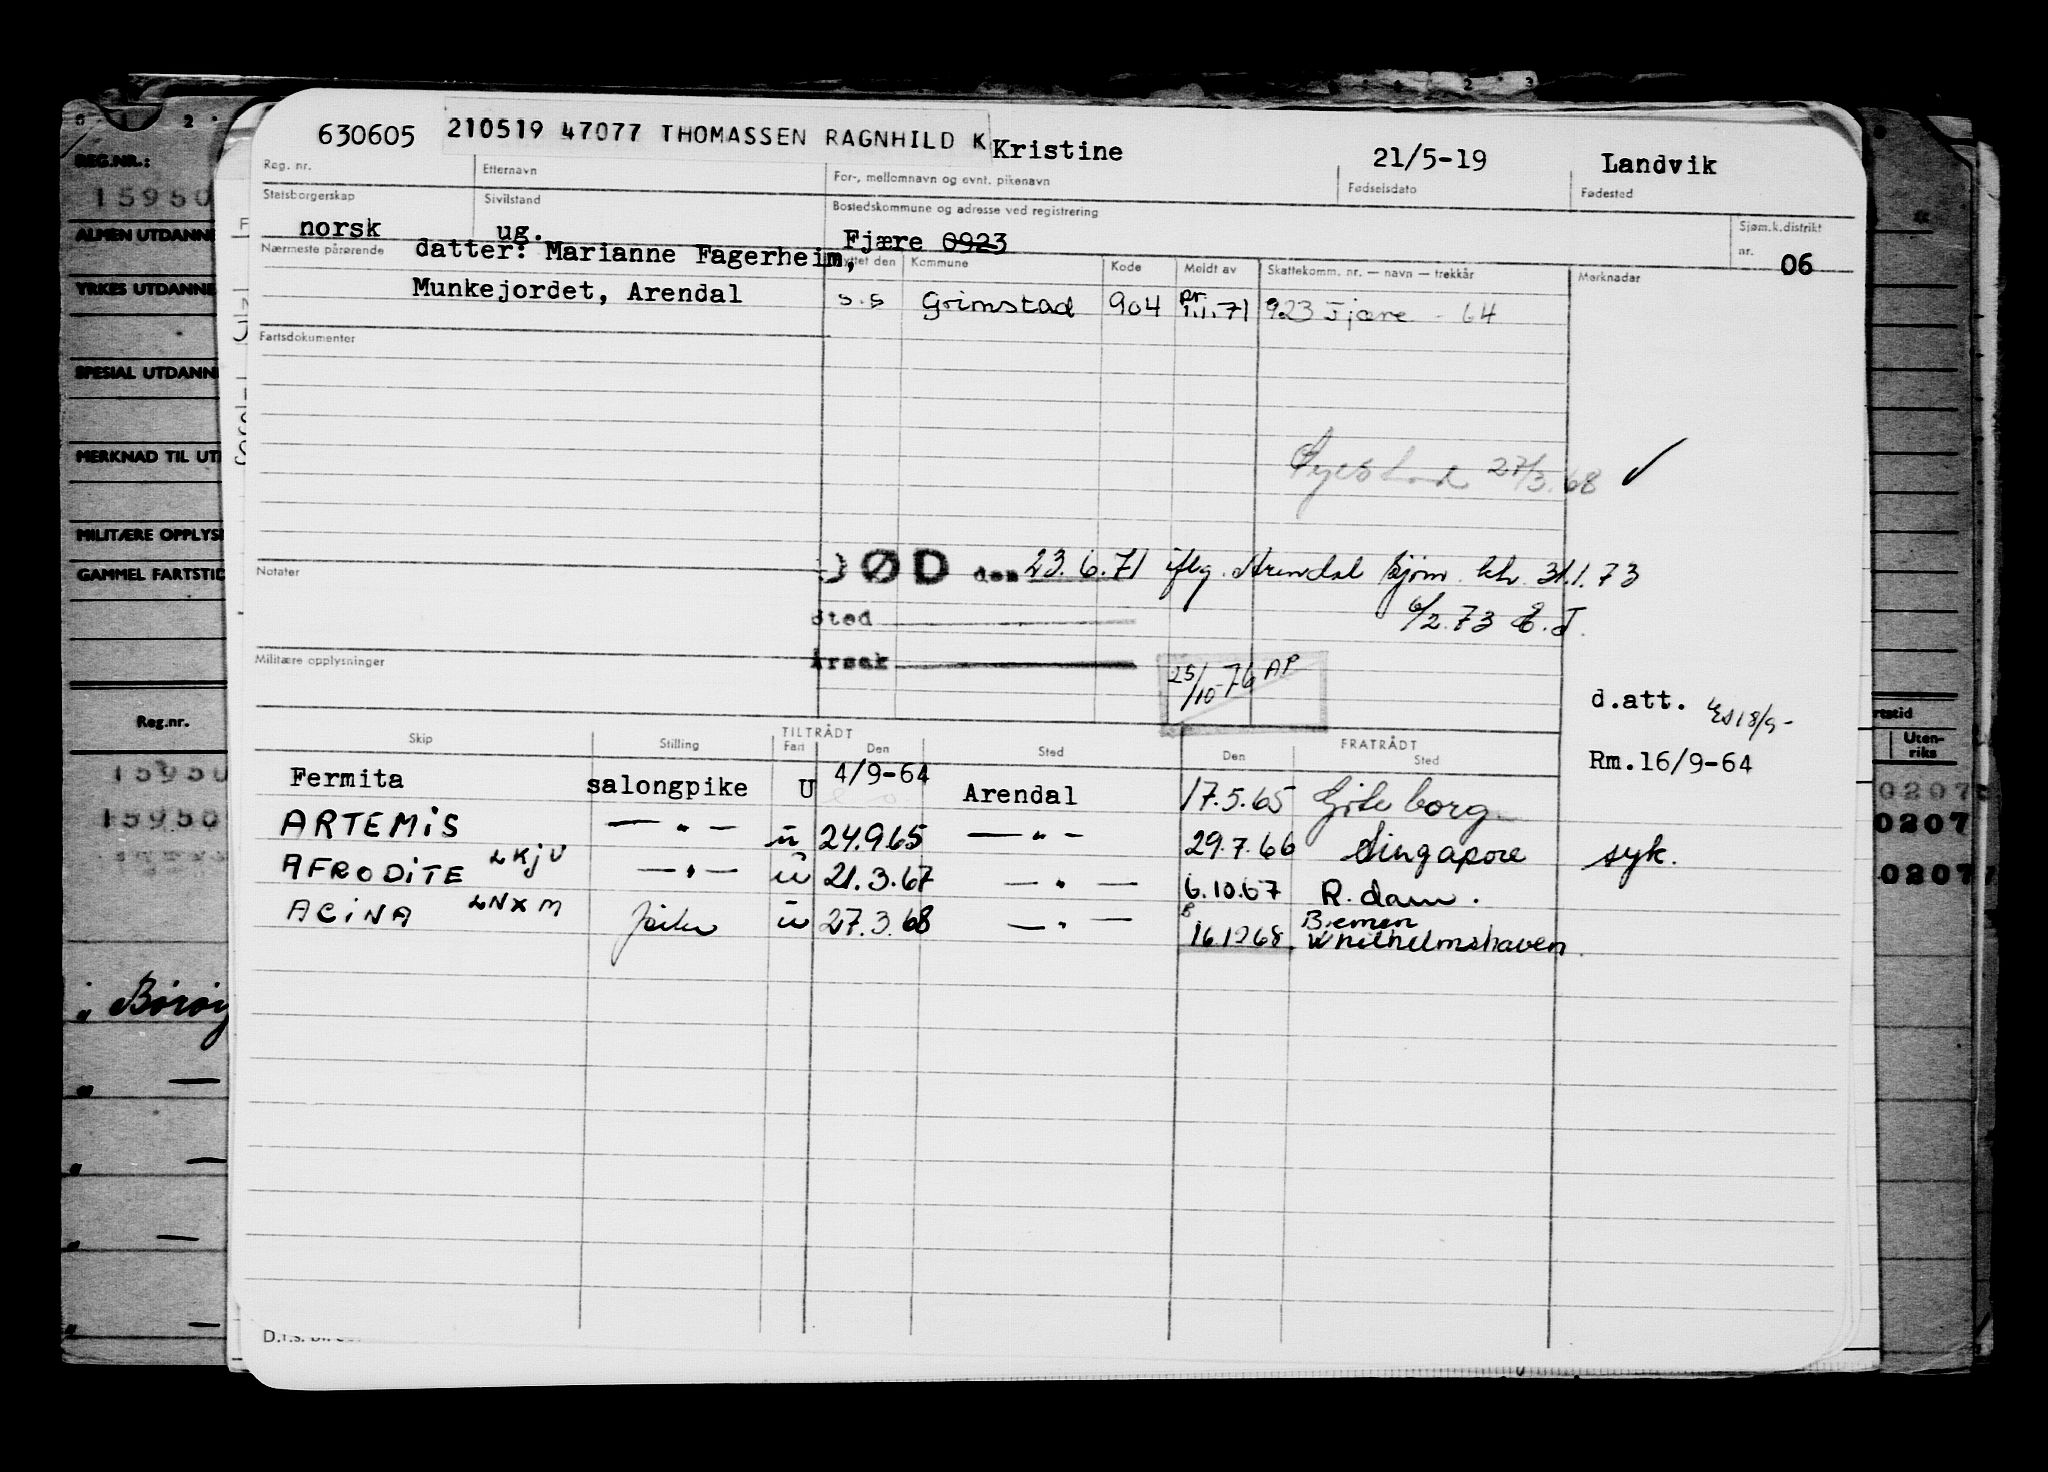 630605 210519 47077 THOMASSEN RAGNHILD K Kristine 21/5-19 Landvik
Reg. nr. Etternavn For-, mellomnavn og evnt. pikenavn Fødselsdato Fødested
Statsborgerskap Sivilstand Bostedskommune og adresse ved registrering Sjøm.k.distrikt
norsk ug. Fjære 0923 nr. 06
Nærmeste pårørende datter: Marianne Fagerheim, Flyttet den Kommune Kode Meldt av Skattekomm. nr. — navn — trekkår Merknader
Munkejordet, Arendal s.s Grimstad 904 pr. 1.1.71 923 Fjære - 64
Fartsdokumenter
27/3.68 ✓
Notater
DØD den 23.6.71 iflg. Arendal sjøm. kh. 31.1.73
Sted 6/2.73 E.T.
Militære opplysninger
Årsak
25/10-76 AP
d.att. 18/9-
Rm.16/9-64
TILTRÅDT FRATRÅDT
Skip Stilling Fart Den Sted Den Sted
Fermita salongpike U 4/9-64 Arendal 17.5.65 Gøteborg
ARTEMIS — " — u 24.9.65 — " — 29.7.66 Singapore syk.
AFRODITE LKJU — " — u 21.3.67 — " — 6.10.67 R.dam.
ACINA LNXM pike u 27.3.68 — " — 16.12 68 Bremen
Whilhelmshaven
REG.NR.:
15950
ALMEN UTDANNE
YRKES UTDANNE
SPESIAL UTDANN
MERKNAD TIL UT
MILITÆRE OPPLYS
GAMMEL FARTSTID
Reg.nr.
15950
15950
" Børøy
" —
" —
" —
" —
rtstid
Uten-
riks
0207
0207
0207